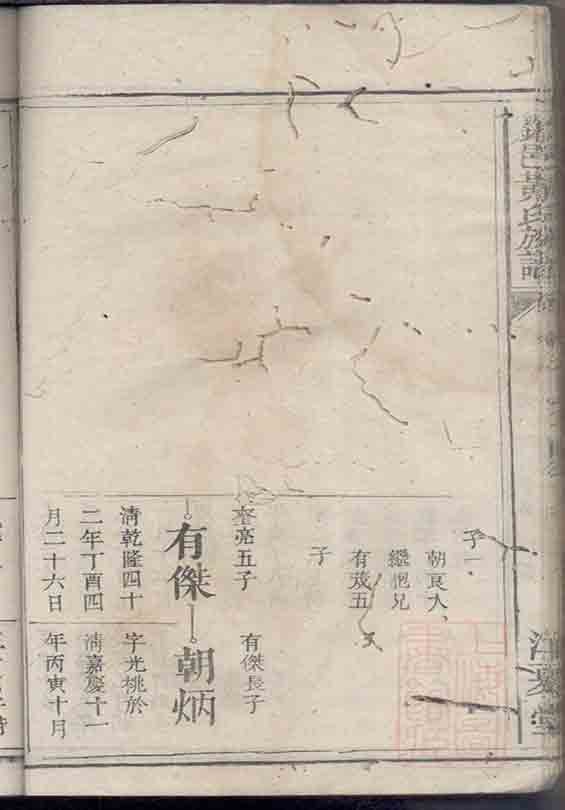 邑黃氏族譜
江夏堂
子一
朝良入
繼胞兄
有茂五
子
奎亮五子
有傑
清乾隆四十
二年丁酉四
月二十六日
有傑長子
朝炳
字光桃於
清嘉慶十一
年丙寅十月